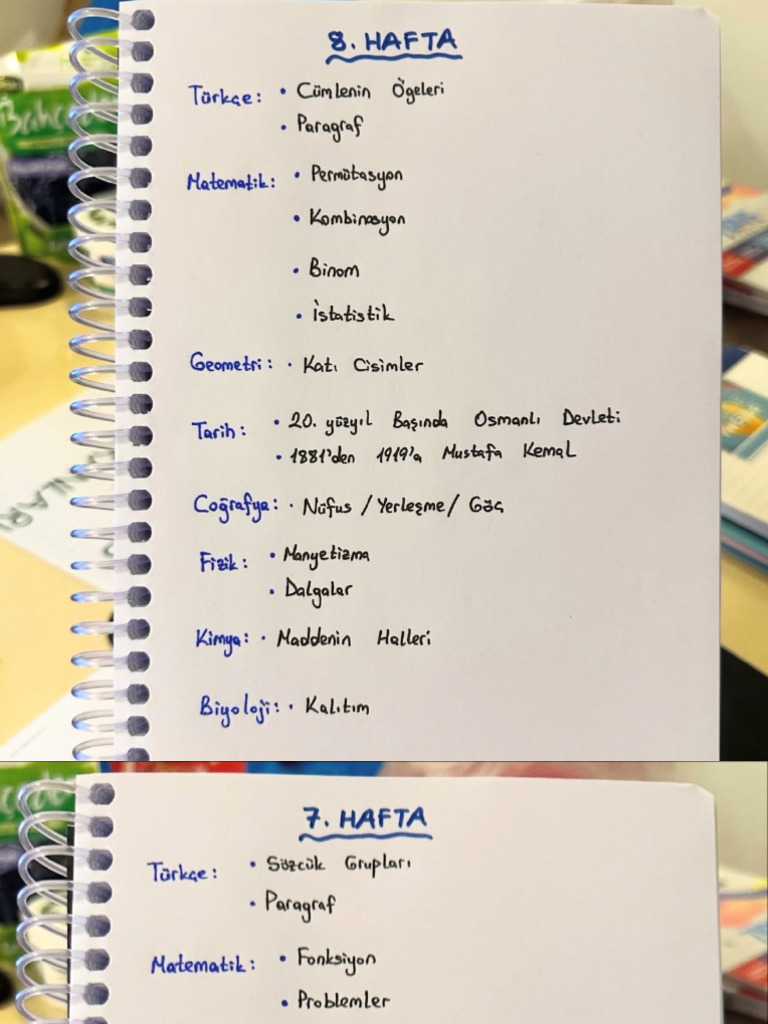 8. HAFTA
Türkçe: • Cümlenin Ögeleri
• Paragraf
Matematik: • Permütasyon
• Kombinasyon
• Binom
• İstatistik
Geometri: • Katı Cisimler
Tarih: • 20. yüzyıl Başında Osmanlı Devleti
• 1881'den 1919'a Mustafa Kemal
Coğrafya: • Nüfus / Yerleşme / Göç
Fizik: • Manyetizma
• Dalgalar
Kimya: • Maddenin Halleri
Biyoloji: • Kalıtım
7. HAFTA
Türkçe: • Sözcük Grupları
• Paragraf
Matematik: • Fonksiyon
• Problemler